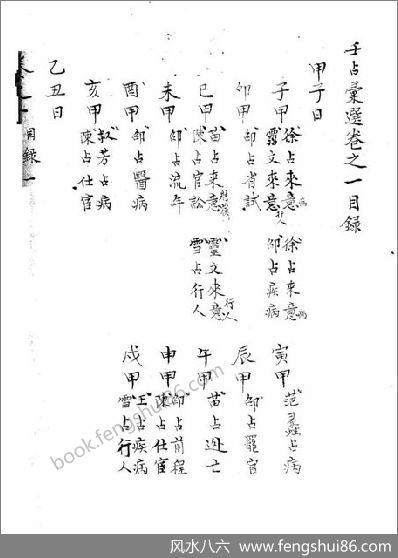 壬占彙選卷之一目錄
甲子日
子甲 徐占來意 病 徐占來意 病
靈文來意 行人 邵占疾病
寅甲 范蠡占病
卯甲 邵占省試
辰甲 邵占罷官
巳甲 苗占來意 射覆 靈文來意 行人
陳占官訟 雪占行人
午甲 苗占逃亡
未甲 邵占流年
申甲 邵占前程
陳占仕宦
酉甲 邵占醫病
戌甲 王占疾病
雪占行人
亥甲 叔芳占病
陳占仕宦
乙丑日
目錄 一
book.fengshui86.com
风水八六 | www.fengshui86.com